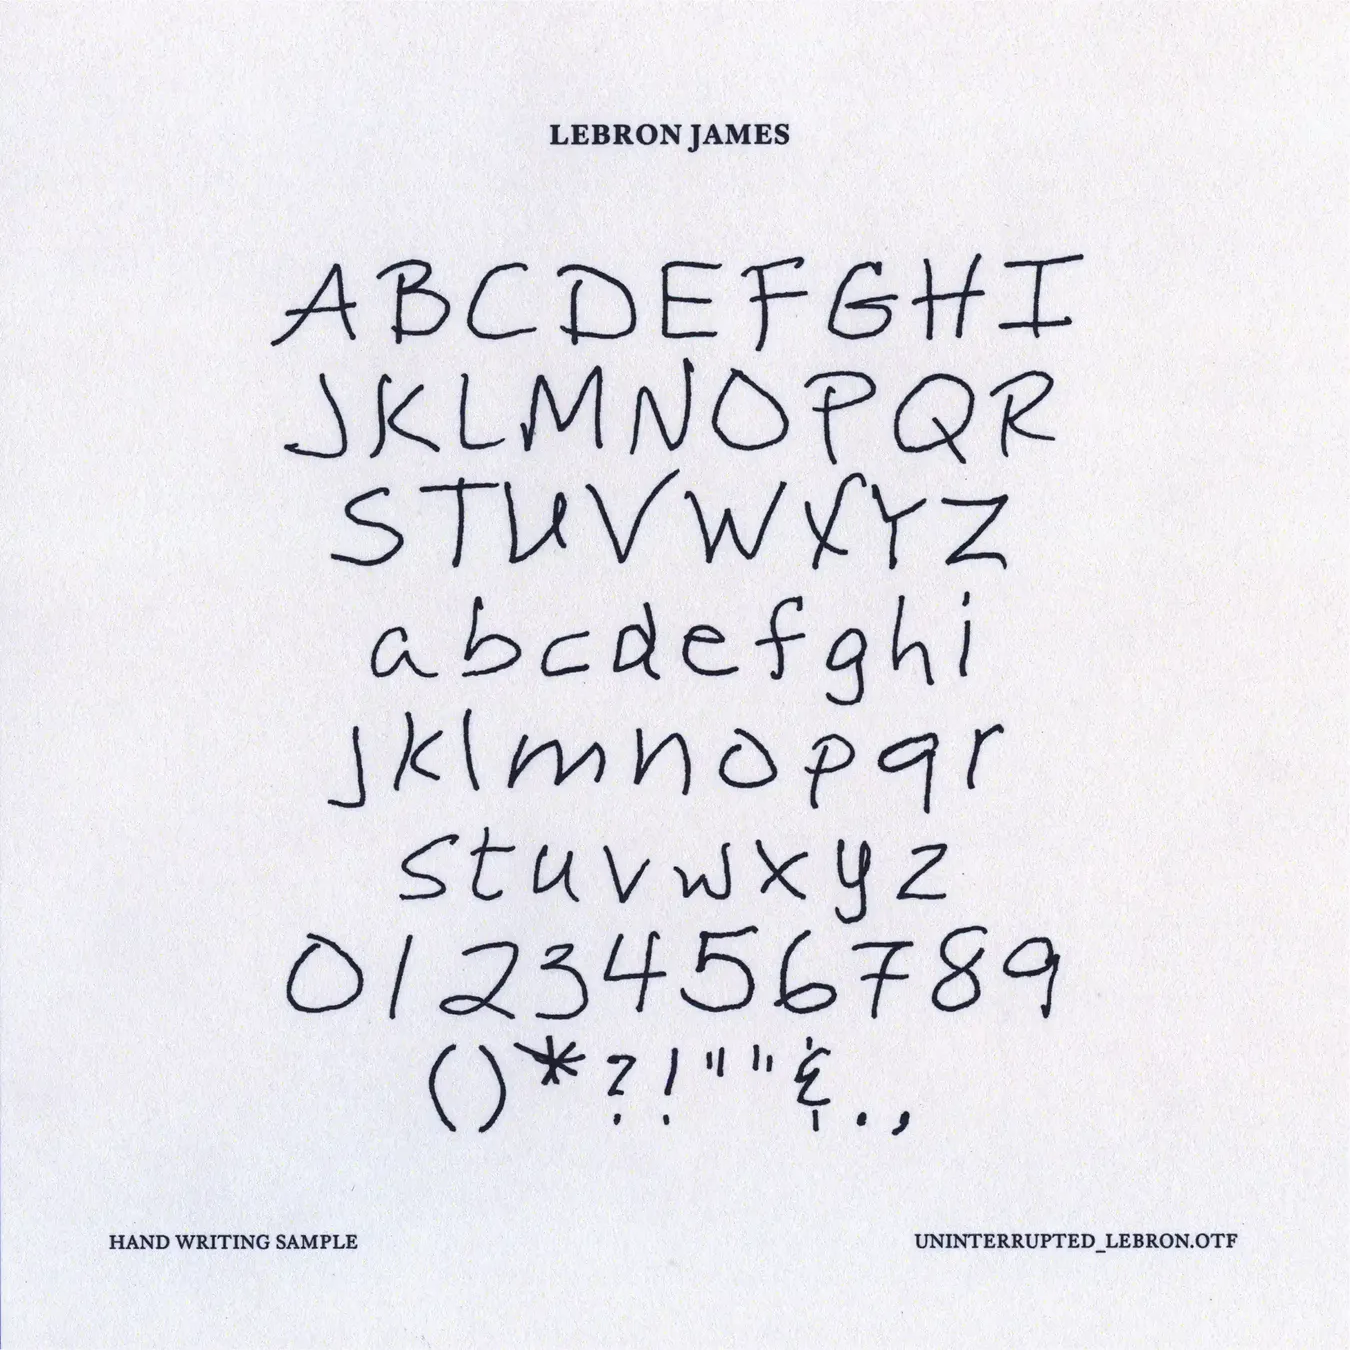 LEBRON JAMES
ABCDEFGHI
JKLMNOPQR
STUVWXYZ
abcdefghi
jklmnopqr
stuvwxyz
0123456789
()*?!""&.,
HAND WRITING SAMPLE
UNINTERRUPTED_LEBRON.OTF